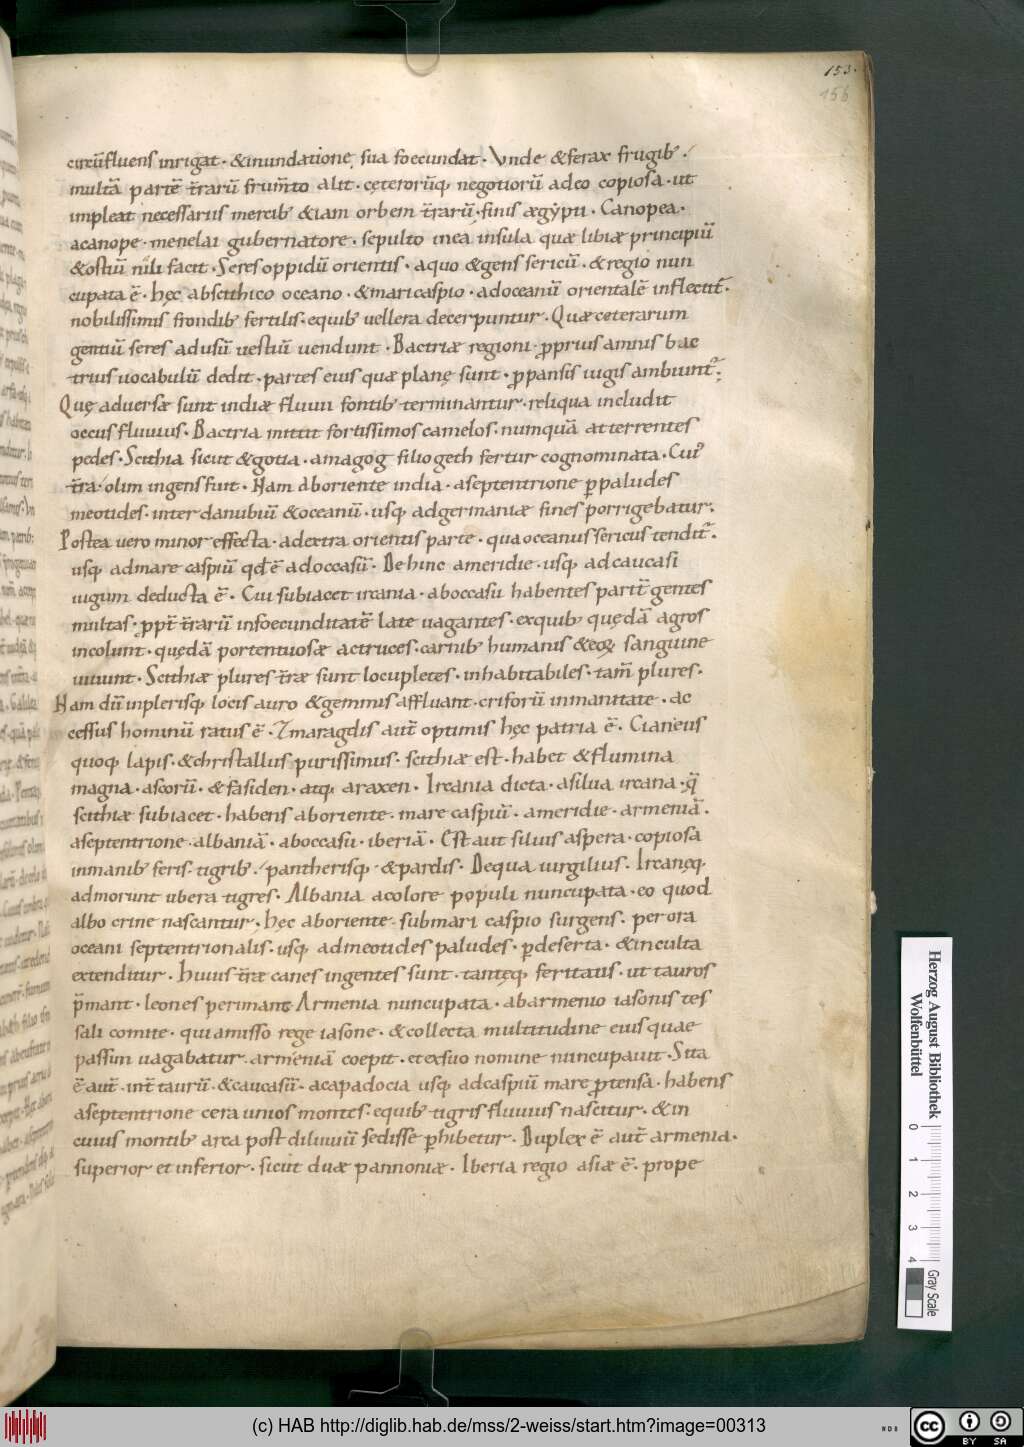 153.
156
circũfluens inrigat · &inundatione sua foecundat · Vnde &ferax frugib ·
multã partẽ t̃rarũ frum̃to alit · cęterorũq; negotiorũ adeo copiosa · ut
impleat necessariis mercib &iam orbem t̃rarũ · finis ægẏpti · Canopea ·
acanope · menelai gubernatore · sepulto inea insula quæ libiæ principiũ
&ostiũ nili facit · Seres oppidũ orientis · aquo &gens sericũ · &regio nun
cupata ẽ · hęc abscithico oceano · &maricaspio · adoceanũ orientalẽ inflectit̃ ·
nobilissimis frondib fertilis · equib uellera decerpuntur · Quæ ceterarum
gentiũ seres adusũ uestiũ uendunt · Bactriæ regioni · p̱prius amnis bac
trius uocabulũ dedit · partes eius quæ planę sunt · p̱pansis iugis ambiunt᷑ ;
Quę aduersæ sunt indiæ fluuii fontib terminantur · reliqua includit
occus fluuius · Bactria mittit fortissimos camelos · numquã atterentes
pedes · Scithia sicut &gotia · amagog filio geth fertur cognominata · Cui᷒
t̃ra · olim ingens fuit · Nam aboriente india · aseptentrione p̱ paludes
meotides · inter danubiũ &oceanũ · usq; adgermaniæ fines porrigebatur ·
Postea uero minor effecta · adextra orientis parte · qua oceanus sericus tendit᷑ ·
usq; admare caspiũ qd̃ ẽ adoccasũ · Dehinc ameridie · usq; adcaucasi
iugum deducta ẽ · Cui subiacet ircania · aboccasu habentes parit̃ gentes
multas · p̱pt̃ t̃rarũ infoecunditatẽ late uagantes · exquib quędã agros
incolunt · quędã portentuosæ actruces · carnib humanis &eoꝝ sanguine
uiuunt · Scithiæ plures t̃ræ sunt locupletes · inhabitabiles · tam̃ plures ·
Nam dũ inplerisq; locis auro &gemmis affluant · criforũ inmanitate · ac
cessus hominũ rarus ẽ · Zmaragdis aut̃ optimis hęc patria ẽ · Cianeus
quoq; lapis · &christallus purissimus · scithiæ est · habet &flumina
magna · ascorũ · &fasiden · atq; araxen · Ircania dicta · asilua ircana · q̃
scithiæ subiacet · habens aboriente · mare caspiũ · ameridie · armeniã ·
aseptentrione · albaniã · aboccasu · iberiã · Est aut siluis aspera · copiosa
inmanib feris · tigrib · pantherisq; · &pardis · Dequa uirgilius · Ircanęq;
admorunt ubera tigres · Albania acolore populi nuncupata · eo quod
albo crine nascantur · hęc aboriente · submari caspio surgens · per ora
oceani septentrionalis · usq; admeotides paludes · p̱deserta · &inculta
extenditur · huius t̃ræ canes ingentes sunt · tantęq; feritatis · ut tauros
p̃mant · leones perimant Armenia nuncupata · abarmenio iasonis tes
sali comite · qui amisso rege iasone · &collecta multitudine eius quae
passim uagabatur · armeniã coepit · et exsuo nomine nuncupauit · Sita
ẽ aut̃ · int̃ taurũ · &caucasũ · acapadocia usq; adcaspiũ mare p̱tensa · habens
aseptentrione cera unios montes · equib tigris fluuius nascitur · &in
cuius montib area post diluuiũ sedisse p̱hibetur · Duplex ẽ aut̃ armenia ·
superior et inferior · sicut duæ pannoniæ · Iberia regio asiæ ẽ · prope
Herzog August Bibliothek
Wolfenbüttel
0 1 2 3 4
Gray Scale
(c) HAB http://diglib.hab.de/mss/2-weiss/start.htm?image=00313
cc BY SA